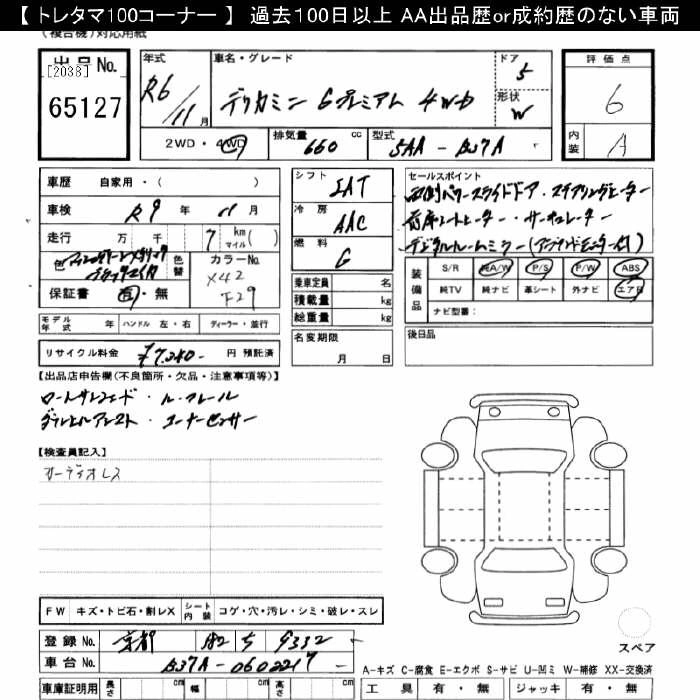 【 トレタマ100コーナー 】 過去100日以上 AA出品歴or成約歴のない車両
(複合機)対応用紙
出品No.
[2038]
65127
年式
R6/11月
車名・グレード
デリカミニ Gプレミアム 4WD
ドア
5
形状
W
2WD・4WD
排気量 660 cc
型式 5AA - B37A
評価点
6
内装
A
車歴 自家用・( )
車検 R9 年 11 月
走行 万 千 7 km マイル ( )
色
色替
カラーNo.
X42
F29
保証書 有・無
シフト
IAT
冷房
AAC
燃料
G
セールスポイント
両側パワースライドドア・ステアリングヒーター
前席シートヒーター・サーキュレーター
デジタルルームミラー
乗車定員 名
積載量 kg
総重量 kg
装備品
S/R 純A/W P/S P/W ABS
純TV 純ナビ 革シート 外ナビ エアB
ナビ型番:
モデル年式 年 ハンドル 左・右 ディーラー・並行
名変期限
月 日
後日品
リサイクル料金 ¥7,280- 円 預託済
【出品店申告欄(不良箇所・欠品・注意事項等)】
ルーフレール
コーナーセンサー
【検査員記入】
オーディオレス
FW キズ・トビ石・割レX シート内装 コゲ・穴・汚レ・シミ・破レ・スレ
登録No. 京都 582 ち 9332
車台No. B37A-0602217
スペア
A-キズ C-腐食 E-エクボ S-サビ U-凹ミ W-補修 XX-交換済
車庫証明用 長さ cm 幅 cm 高さ cm
工具 有・無 ジャッキ 有・無